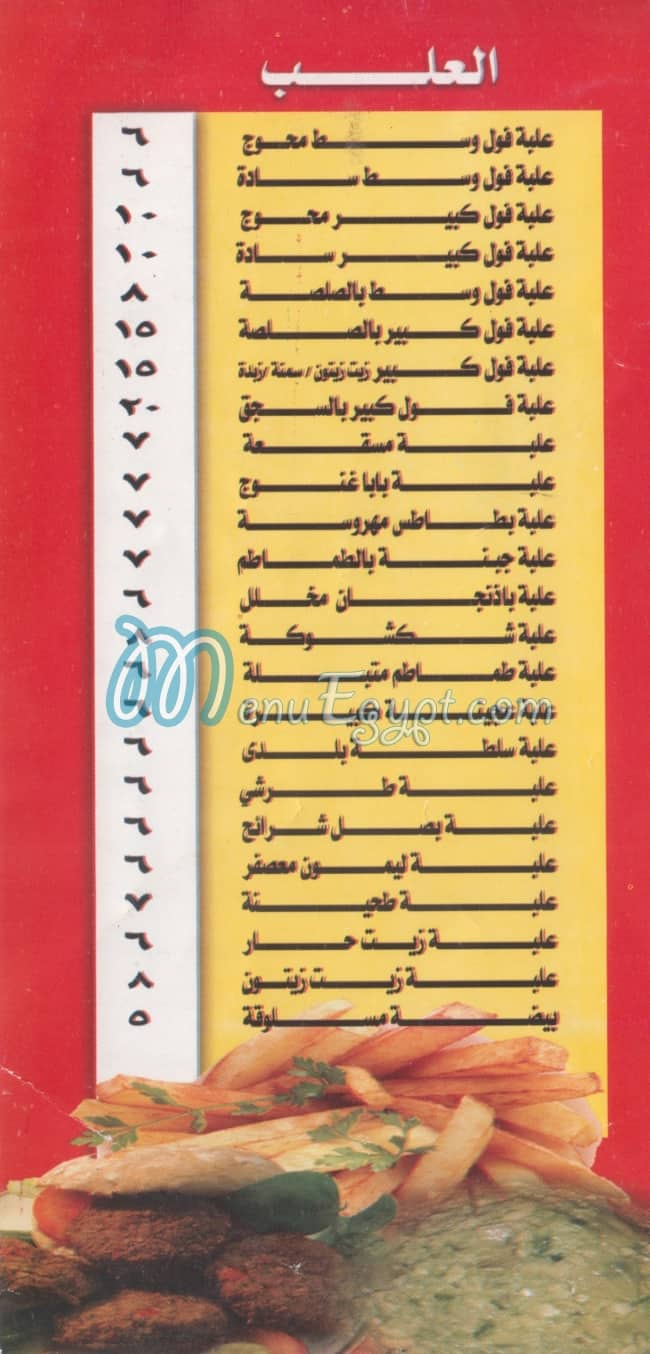 العلب
علبة فول وسط محوج ٦
علبة فول وسط سادة ٦
علبة فول كبير محوج ١٠
علبة فول كبير سادة ١٠
علبة فول وسط بالصلصة ٨
علبة فول كبير بالصلصة ١٥
علبة فول كبير زيت زيتون / سمنة / زبدة ١٥
علبة فول كبير بالسجق ٢٠
علبة مسقعة ٧
علبة بابا غنوج ٧
علبة بطاطس مهروسة ٧
علبة جبنة بالطماطم ٧
علبة باذنجان مخلل ٦
علبة شكشوكة
علبة طماطم متبلة
علبة
MenuEgypt.com
علبة سلطة بلدى ٦
علبة طرشي ٦
علبة بصل شرائح ٦
علبة ليمون معصفر ٦
علبة طحينة ٧
علبة زيت حار ٦
علبة زيت زيتون ٨
بيضة مسلوقة ٥